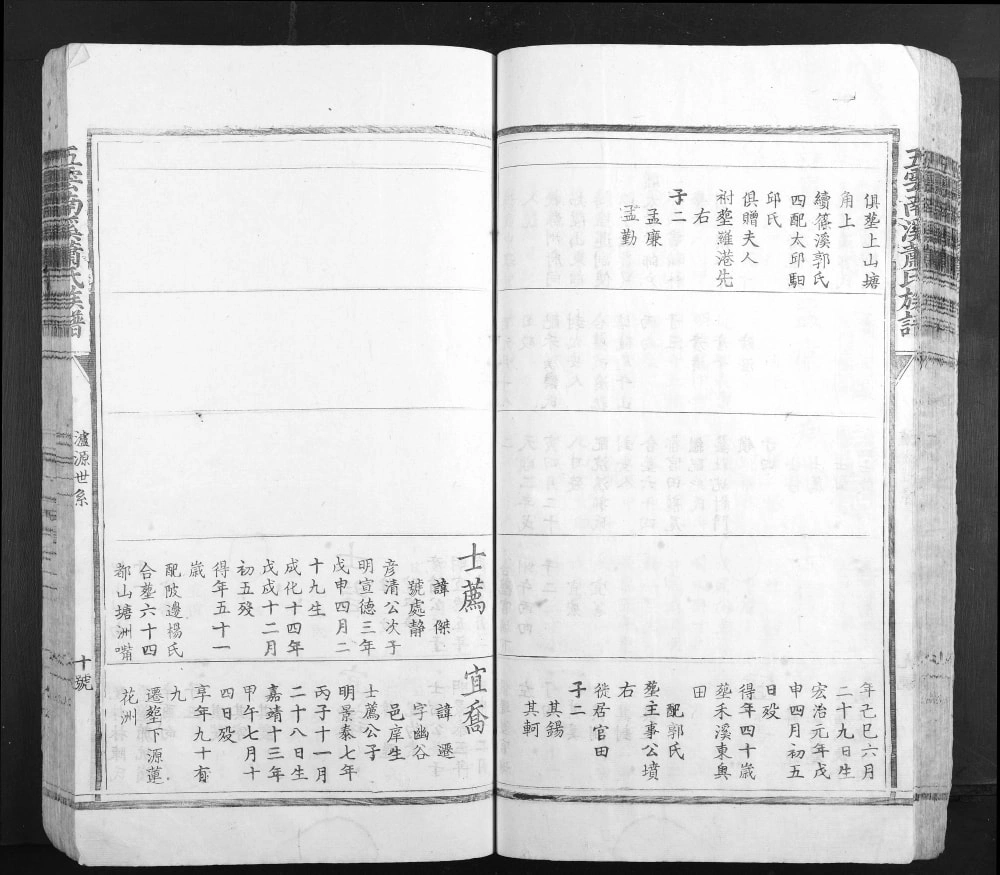 五雲南溪蕭氏族譜
俱塟上山塘
角上
續篠溪郭氏
四配太邱駰
邱氏
俱贈夫人
祔塟羅港先
右
子二
孟廉
孟勤
年己巳六月
二十九日生
宏治元年戊
申四月初五
日殁
得年四十歲
塟禾溪東奥
田
配郭氏
塟主事公墳
右
徙居官田
子二
其錫
其軻
士薦
諱傑
號處静
彦清公次子
明宣德三年
戊申四月二
十九生
成化十四年
戊戌十二月
初五殁
得年五十一
歲
配陂邊楊氏
合塟六十四
都山塘洲嘴
宜喬
諱遷
字幽谷
邑庠生
士薦公子
明景泰七年
丙子十一月
二十八日生
嘉靖十三年
甲午七月十
四日殁
享年九十有
九
遷塟下源蓮
花洲
五雲南溪蕭氏族譜
瀘源世系
十號